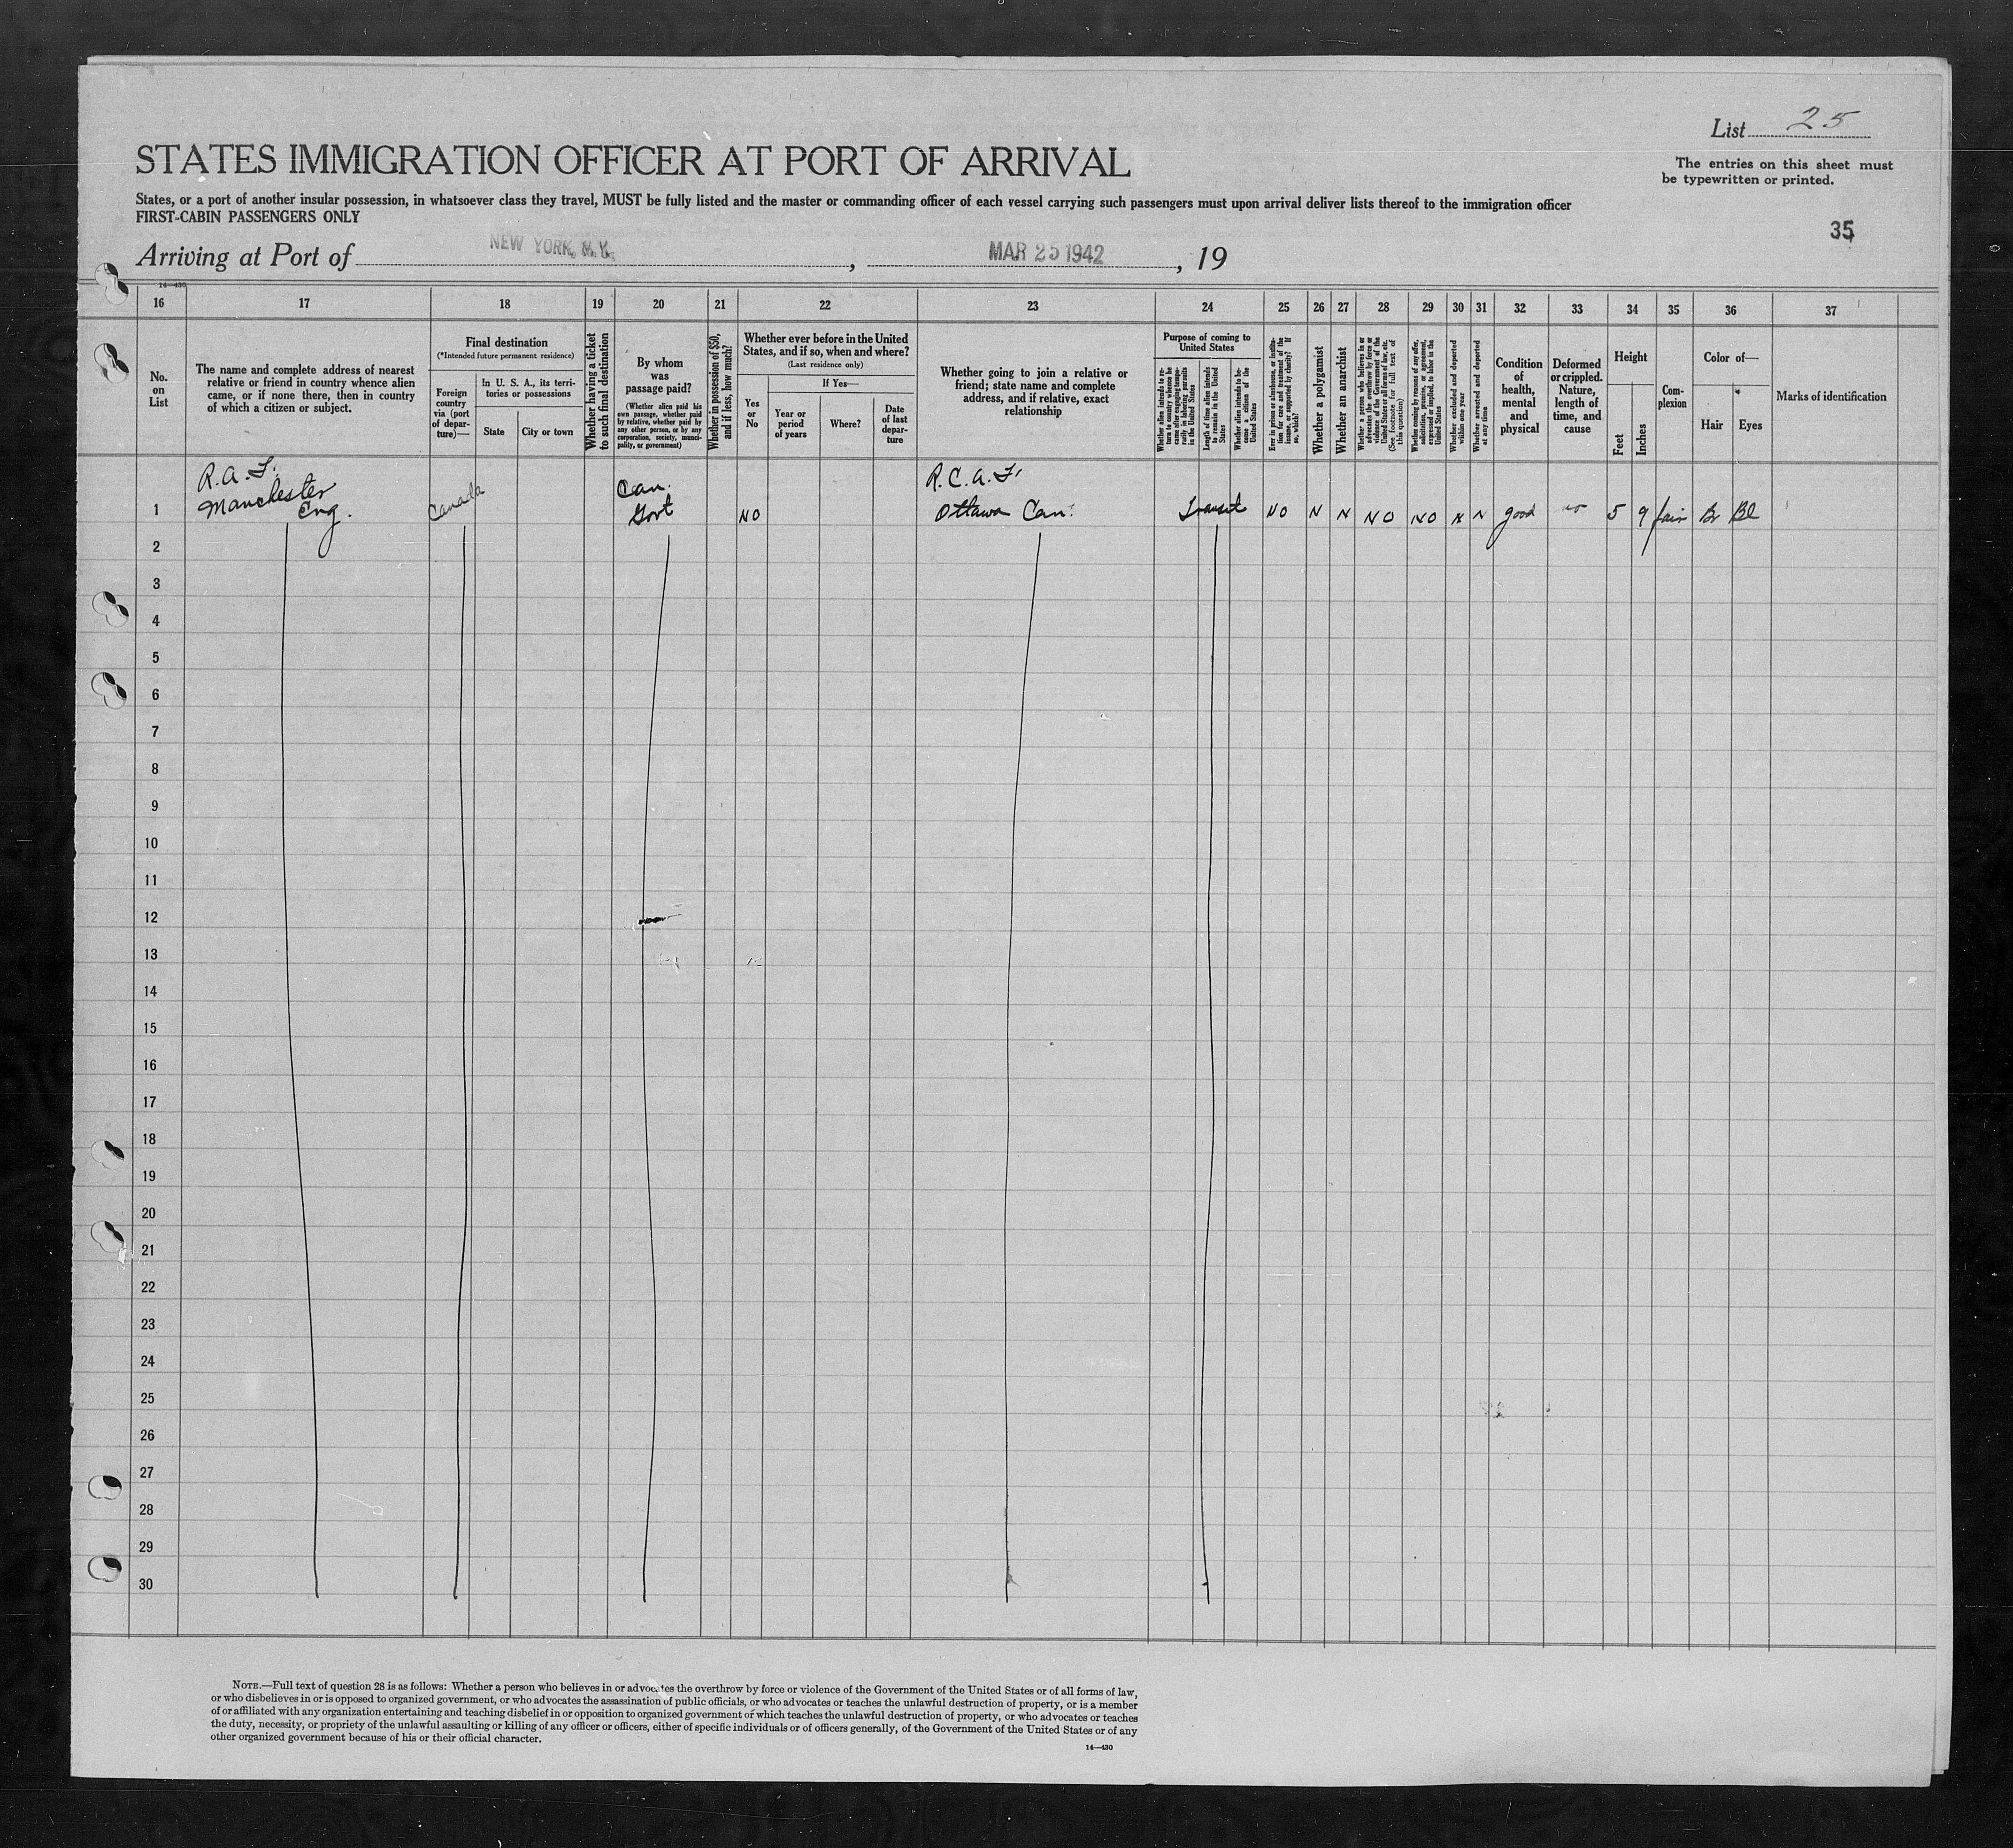 List 25
The entries on this sheet must
be typewritten or printed.
STATES IMMIGRATION OFFICER AT PORT OF ARRIVAL
States, or a port of another insular possession, in whatsoever class they travel, MUST be fully listed and the master or commanding officer of each vessel carrying such passengers must upon arrival deliver lists thereof to the immigration officer
FIRST-CABIN PASSENGERS ONLY
35
Arriving at Port of NEW YORK, N.Y. , MAR 25 1942 , 19
14—430
16 17 18 19 20 21 22 23 24 25 26 27 28 29 30 31 32 33 34 35 36 37
No.
on
List
The name and complete address of nearest
relative or friend in country whence alien
came, or if none there, then in country
of which a citizen or subject.
Final destination
(*Intended future permanent residence)
Foreign
country
via (port
of depar-
ture)—
In U. S. A., its terri-
tories or possessions
State
City or town
Whether having a ticket
to such final destination
By whom
was
passage paid?
(Whether alien paid his
own passage, whether paid
by relative, whether paid by
any other person, or by any
corporation, society, munici-
pality, or government)
Whether in possession of $50,
and if less, how much?
Whether ever before in the United
States, and if so, when and where?
(Last residence only)
Yes
or
No
If Yes—
Year or
period
of years
Where?
Date
of last
depar-
ture
Whether going to join a relative or
friend; state name and complete
address, and if relative, exact
relationship
Purpose of coming to
United States
Whether alien intends to re-
turn to country whence he
came after engaging tempo-
rarily in laboring pursuits
in the United States
Length of time alien intends
to remain in the United
States
Whether alien intends to be-
come a citizen of the
United States
Ever in prison or almshouse, or institu-
tion for care and treatment of the
insane, or supported by charity? If
so, which?
Whether a polygamist
Whether an anarchist
Whether a person who believes in or
advocates the overthrow by force or
violence of the Government of the
United States or all forms of law, etc.
(See footnote for full text of
this question)
Whether coming by reasons of any offer,
solicitation, promise, or agreement,
expressed or implied, to labor in the
United States
Whether excluded and deported
within one year
Whether arrested and deported
at any time
Condition
of
health,
mental
and
physical
Deformed
or crippled.
Nature,
length of
time, and
cause
Height
Feet
Inches
Com-
plexion
Color of—
Hair
Eyes
Marks of identification
R.A.F.
Manchester
Eng.
Canada
Can.
Govt
NO
R.C.A.F.
Ottawa Can.
Transit
NO N N NO NO N N good no 5 9 fair Br Bl
1
2
3
4
5
6
7
8
9
10
11
12
13
14
15
16
17
18
19
20
21
22
23
24
25
26
27
28
29
30
NOTE.—Full text of question 28 is as follows: Whether a person who believes in or advocates the overthrow by force or violence of the Government of the United States or of all forms of law,
or who disbelieves in or is opposed to organized government, or who advocates the assassination of public officials, or who advocates or teaches the unlawful destruction of property, or is a member
of or affiliated with any organization entertaining and teaching disbelief in or opposition to organized government or which teaches the unlawful destruction of property, or who advocates or teaches
the duty, necessity, or propriety of the unlawful assaulting or killing of any officer or officers, either of specific individuals or of officers generally, of the Government of the United States or of any
other organized government because of his or their official character.
14—430